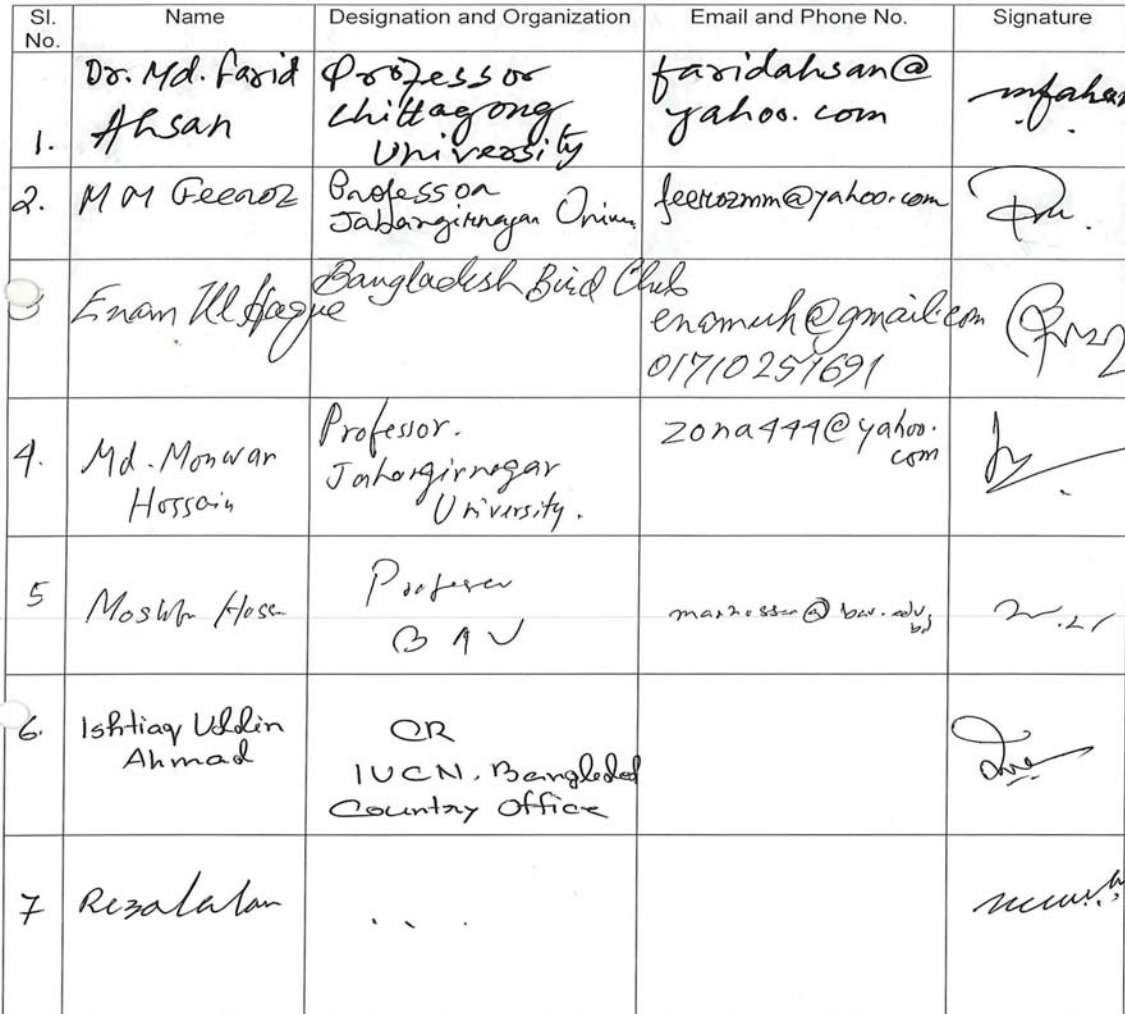 Sl. No. Name Designation and Organization Email and Phone No. Signature
1. Dr. Md. Farid Ahsan Professor Chittagong University faridahsan@yahoo.com mfahsan
2. M M Feeroz Professor Jahangirnagar Univ. feerozmm@yahoo.com
3 Enam Ul Haque Bangladesh Bird Club enamuh@gmail.com 01710251691
4. Md. Monwar Hossain Professor. Jahangirnagar University. zona444@yahoo.com
5 Professor BAU
6. Ishtiaq Uddin Ahmad CR IUCN, Bangladesh Country Office
7